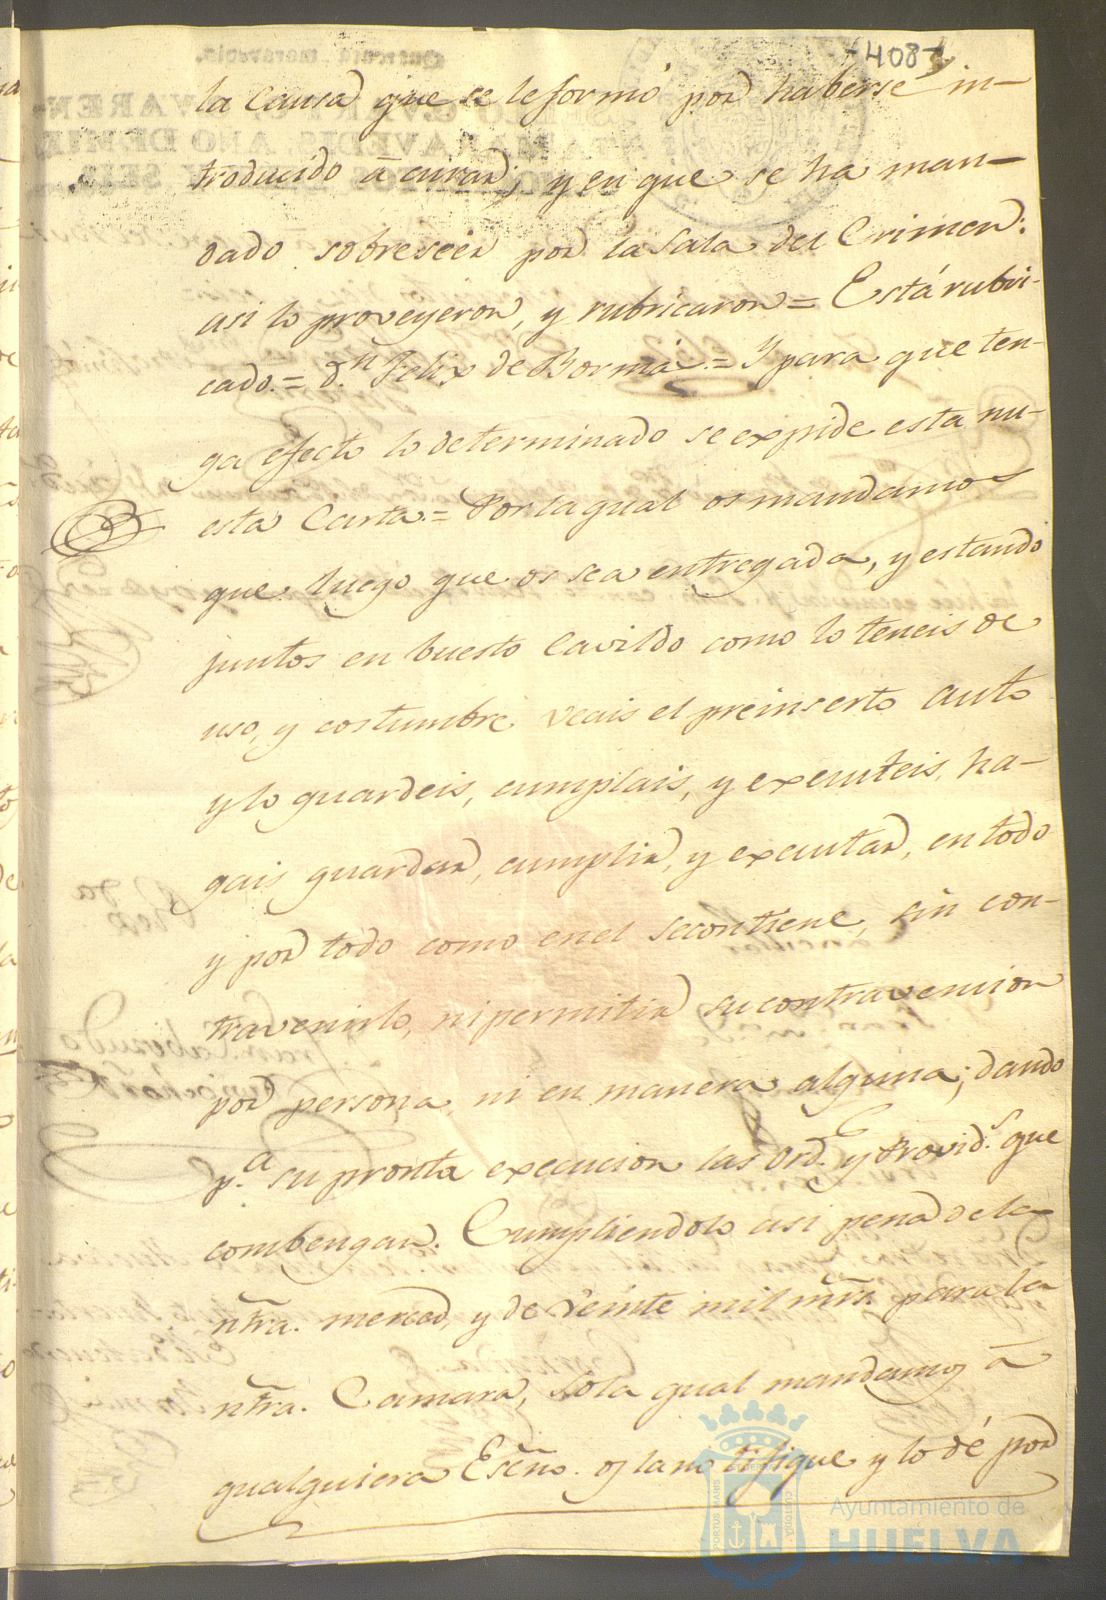 -408-
la Causa que se le formó por haberse in-
troducido â curar, y en que se ha man-
dado sobreseer por la Sala del Crimen:
asi lo proveyeron, y rubricaron = Está rubri-
cado. = d.n Felix de Bormas. = Y para que ten-
ga efecto lo determinado se expide esta nu-
esta Carta = Por la qual os mandamos
que luego que os sea entregada, y estando
juntos en buesto Cavildo como lo teneis de
uso, y costumbre veais el preinserto auto
y lo guardeis, cumplais, y executeis, ha-
gais guardar, cumplir, y executar, en todo
y por todo como en el se contiene, sin con-
travenirlo, ni permitir su contravencion
por persona, ni en manera alguna; dando
p.a su pronta execucion las ord.s y Provid.s que
combengan. Cumpliendolo asi pena de la
ntrã. merced, y de veinte mil mrs̃. para la
ntrã. Camara, so la qual mandamos â
qualquiera Esc̃no. os la notifique y lo dé por
Ayuntamiento de
HUELVA